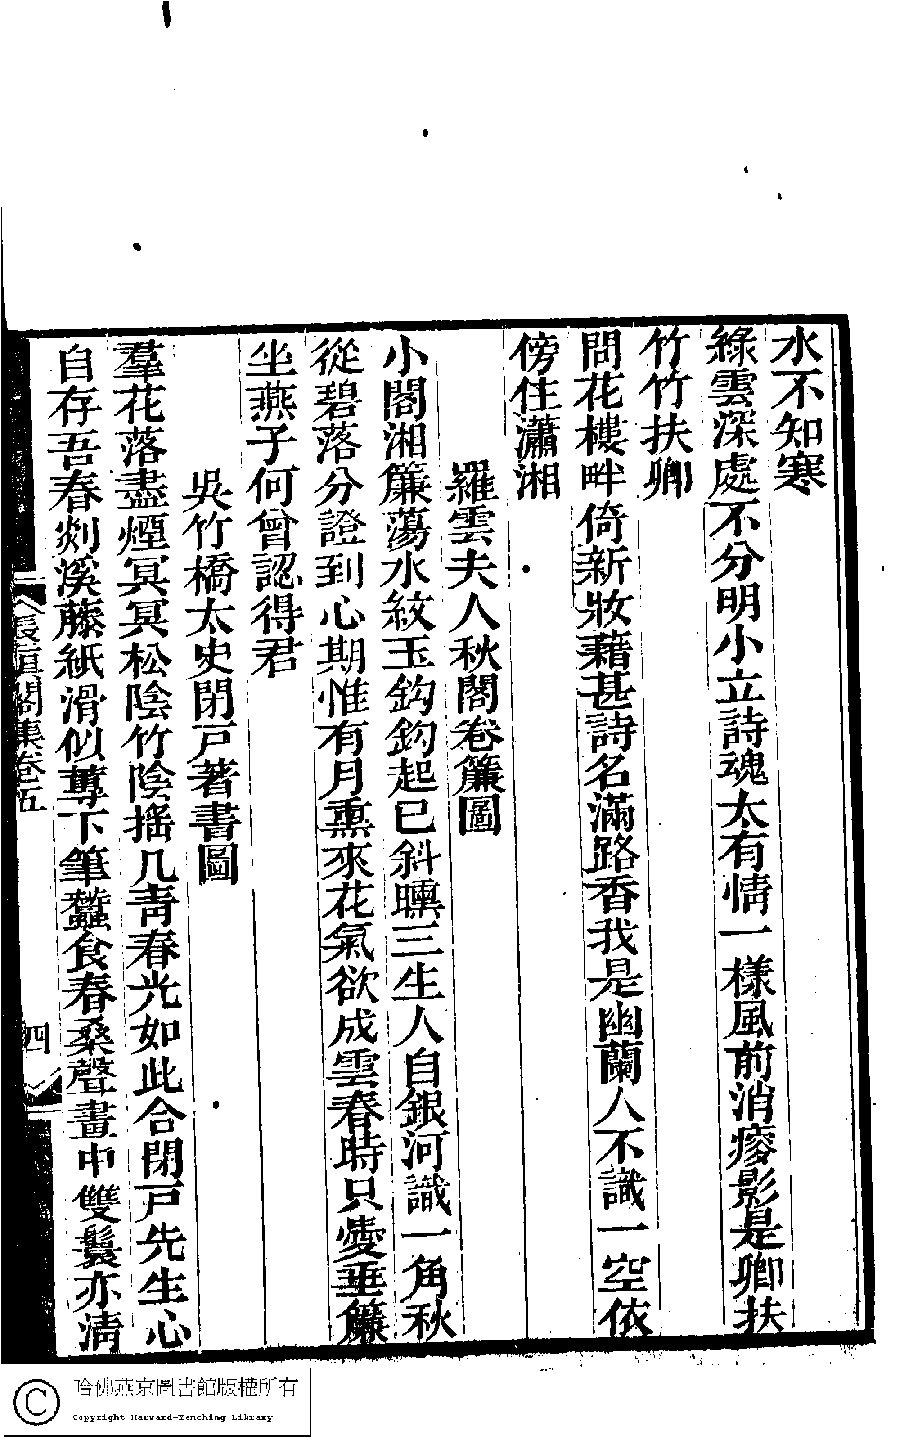 水不知寒
綠雲深處不分明小立詩魂太有情一樣風前消瘦影是卿扶
竹竹扶卿
問花樓畔倚新妝藉甚詩名滿路香我是幽蘭人不識一空依
傍住瀟湘
羅雲夫人秋閣卷簾圖
小閣湘簾蕩水紋玉鈎鈎起已斜曛三生人自銀河識一角秋
從碧落分證到心期惟有月熏來花氣欲成雲春時只愛垂簾
坐燕子何曾認得君
吳竹橋太史閉戸著書圖
羣花落盡煙冥冥松陰竹陰搖几靑春光如此合閉戸先生心
自存吾春剡溪藤紙滑似蓴下筆蠶食春桑聲畫中雙鬟亦淸
長眞閣集卷五
四
哈佛燕京圖書館版權所有
Copyright Harvard-Yenching Library